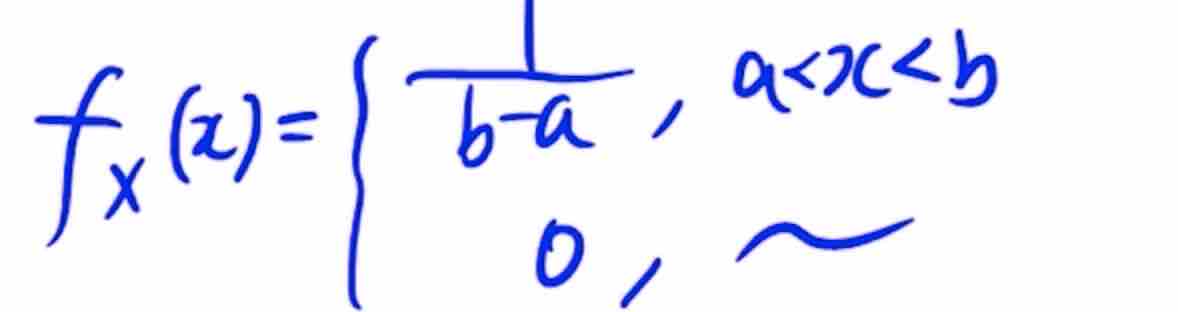 f_X(x) = { 1/(b-a), a<x<b
0, ~